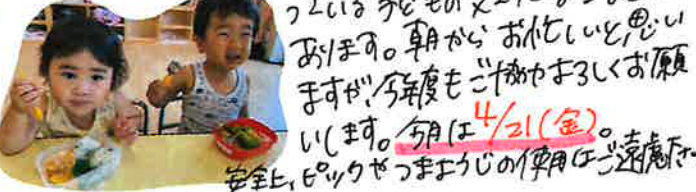 っている子どもの
あります。朝からお忙しいと思い
ますが、今年度もご協力よろしくお願
いします。今月は4/21(金)。
安全上、ピックやつまようじの使用はご遠慮下さ